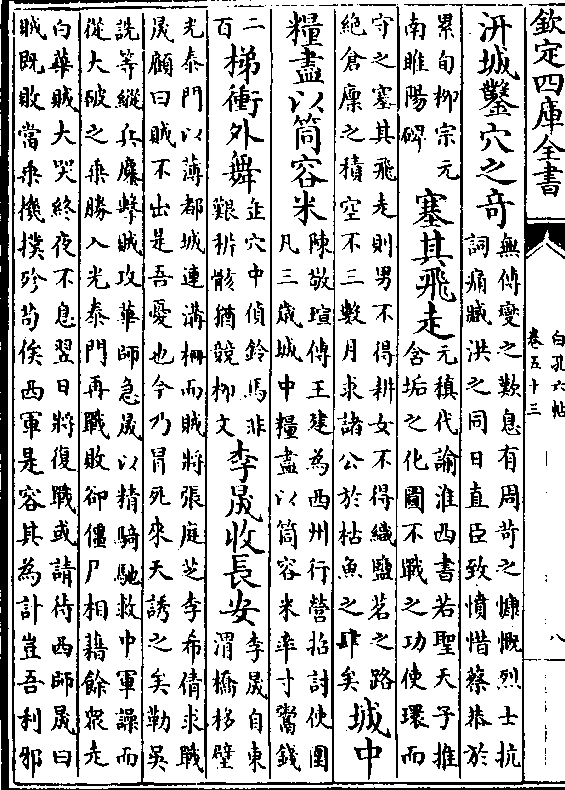 欽定四庫全書
白孔六帖
卷五十三
八
汧城鑿穴之奇
無傅變之歎息有周苛之慷慨烈士抗
詞痛臧洪之同日直臣致憤惜蔡恭於
累旬柳宗元
南睢陽碑
塞其飛走
元稹代諭淮西書若聖天子推
含垢之化圖不戰之功使環而
守之塞其飛走則男不得耕女不得織鹽茗之路
絶倉廩之積空不三數月求諸公於枯魚之肆矣
城中
糧盡以筒容米
陳敬瑄傳王建為西州行營招討使圍
凡三歲城中糧盡以筒容米率寸鬻錢
二
百
梯衝外舞
缶穴中偵鈴馬非
艱析骸猶競柳文
李晟收長安
李晟自東
渭橋移壁
光泰門以薄都城連溝柵而賊將張庭芝李希倩求戰
晟顧曰賊不出是吾憂也今乃冒死來天誘之矣勒吳
詵等縱兵麾擊賊攻華師急晟以精騎馳救中軍譟而
從大破之乘勝入光泰門再戰敗卻僵尸相藉餘衆走
白華賊大哭終夜不息翌日將復戰或請待西師晟曰
賊既敗當乘機撲殄茍俟西軍是容其為計豈吾利邪